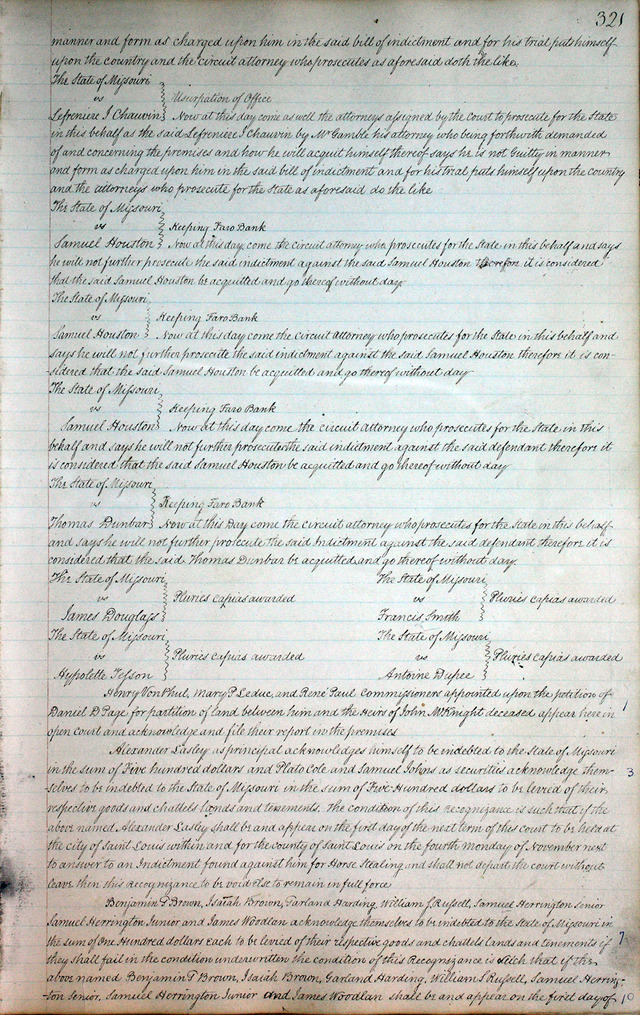 321
manner and form as charged upon him in the said bill of indictment and for his trial puts himself
upon the country and the circuit attorney who prosecutes as aforesaid doth the like.
The State of Missouri
vs
Usurpation of Office
Lefreniere I Chauvin
Now at this day come as well the attorneys assigned by the Court to prosecute for the State
in this behalf as the said Lefreniere I Chauvin by Mr Gamble his attorney who being forthwith demanded
of and concerning the premises and how he will acquit himself thereof says he is not Guilty in manner
and form as charged upon him in the said bill of indictment and for his trial puts himself upon the country
and the attorneys who prosecute for the State as aforesaid do the like
The State of Missouri
vs
Keeping Faro Bank
Samuel Houston
Now at this day come the circuit attorney who prosecutes for the State in this behalf and says
he will not further prosecute the said indictment against the said Samuel Houston therefore it is considered
that the said Samuel Houston be acquitted and go thereof without day
The State of Missouri
vs
Keeping Faro Bank
Samuel Houston
Now at this day come the circuit attorney who prosecutes for the State in this behalf and
says he will not further prosecute the said indictment against the said Samuel Houston therefore it is con-
sidered that the said Samuel Houston be acquitted and go thereof without day
The State of Missouri
vs
Keeping Faro Bank
Samuel Houston
Now at this day come the circuit attorney who prosecutes for the State in this
behalf and says he will not further prosecute the said indictment against the said defendant therefore it
is considered that the said Samuel Houston be acquitted and go thereof without day
The State of Missouri
vs
Keeping Faro Bank
Thomas Dunbar
Now at this Day come the circuit attorney who prosecutes for the State in this behalf
and says he will not further prosecute the said Indictment against the said defendant therefore it is
considered that the said Thomas Dunbar be acquitted and go thereof without day.
The State of Missouri
vs
Pluries capias awarded
James Douglass
The State of Missouri
vs
Pluries capias awarded
Francis Smith
The State of Missouri
vs
Pluries capias awarded
Hyppolette Tesson
The State of Missouri
vs
Pluries capias awarded
Antoine Dupee
Henry Von Phul, Mary P Leduc, and René Paul Commissioners appointed upon the petition of
Daniel D Page for partition of land between him and the Heirs of John McKnight deceased appear here in
open court and acknowledge and file their report in the premises
Alexander Lasley as principal acknowledges himself to be indebted to the State of Missouri
in the sum of Five hundred dollars and Plato Cole and Samuel Johns as securities acknowledge them-
selves to be indebted to the State of Missouri in the sum of Five Hundred dollars to be levied of their
respective goods and chattels lands and tenements. The condition of this Recognizance is such that if the
above named Alexander Lasley shall be and appear on the first day of the next term of this court to be held at
the city of Saint Louis within and for the county of Saint Louis on the fourth Monday of November next
to answer to an Indictment found against him for Horse Stealing and shall not depart the court without
leave then this Recognizance to be void else to remain in full force
Benjamin T Brown, Isaiah Brown, Garland Harding, William S Russell, Samuel Herrington Senior
Samuel Herrington Junior and James Woodlan acknowledge themselves to be indebted to the State of Missouri in
the sum of One Hundred dollars Each to be levied of their respective goods and chattels lands and tenements if
they shall fail in the condition underwritten the condition of this Recognizance is such that if the
above named Benjamin T Brown, Isaiah Brown, Garland Harding, William S Russell, Samuel Herring-
ton Senior, Samuel Herrington Junior and James Woodlan shall be and appear on the first day of